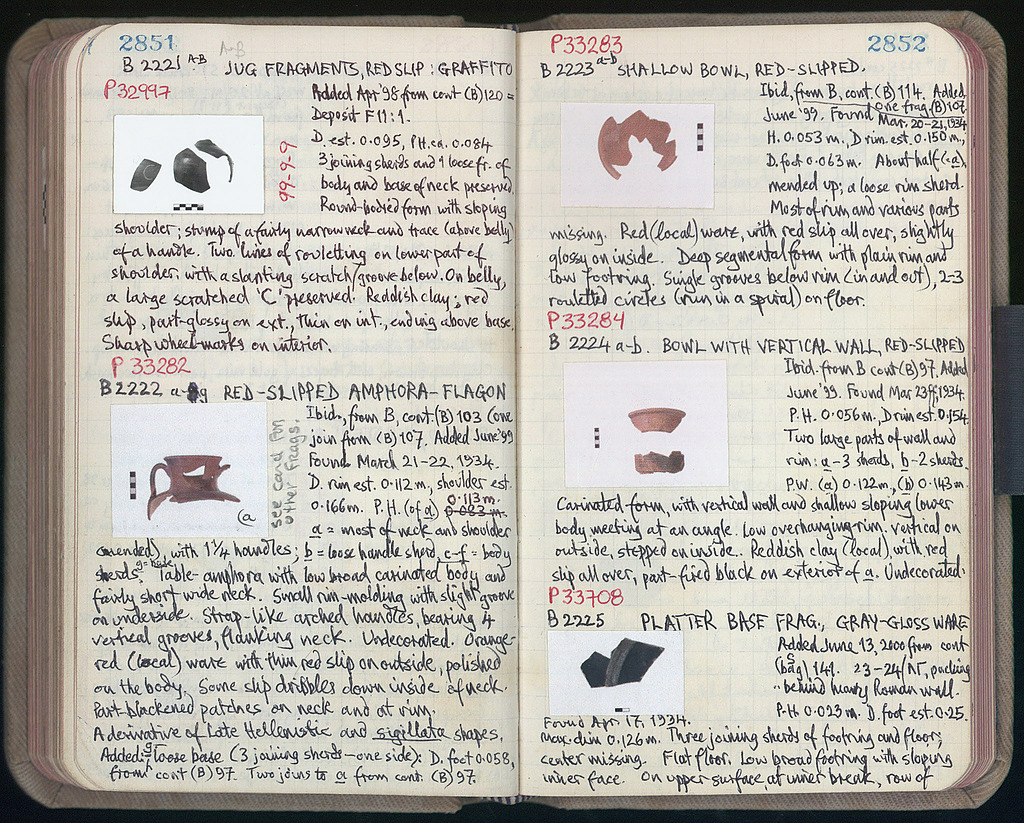 2851
A-B
B 2221 A-B JUG FRAGMENTS, RED SLIP : GRAFFITO
P32997
Added Apr '98 from cont (B) 120 =
Deposit F11:1.
D. est. 0.095, P.H. ca. 0.084
3 joining sherds and 1 loose fr. of
body and base of neck preserved.
Round-bodied form with sloping
99-9-9
shoulder; stump of a fairly narrow neck and trace (above belly)
of a handle. Two lines of rouletting on lower part of
shoulder, with a slanting scratch/groove below. On belly,
a large scratched 'C' preserved. Reddish clay; red
slip, part-glossy on ext., thin on int., ending above base.
Sharp wheel-marks on interior.
P 33282
B 2222 a-g RED-SLIPPED AMPHORA-FLAGON
Ibid., from B, cont. (B) 103 (one
join from (B) 107. Added June '99
Found March 21-22, 1934.
D. rim est. 0.112 m., shoulder est.
0.166 m. P.H. (of a) 0.113 m.
0.083 m.
a = most of neck and shoulder
see card for
other frags.
(a
(mended), with 1 3/4 handles; b = loose handle sherd, c-f = body
sherds. g = base Table-amphora with low broad carinated body and
fairly short wide neck. Small rim-molding with slight groove
on underside. Strap-like arched handles, bearing 4
vertical grooves, flanking neck. Undecorated. Orange-
red (local) ware with thin red slip on outside, polished
on the body. Some slip dribbles down inside of neck.
Part-blackened patches on neck and at rim.
A derivative of Late Hellenistic and sigillata shapes.
Added: g loose base (3 joining sherds - one side): D. foot 0.058,
from cont (B) 97. Two joins to a from cont. (B) 97.
P33283
2852
B 2223 a-b SHALLOW BOWL, RED-SLIPPED.
Ibid., from B, cont. (B) 114. Added
June '99. Found one frag. (B) 107.
Mar. 20-21, 1934
H. 0.053 m. D rim est. 0.150 m.,
D. foot 0.063 m. About half (a),
mended up; a loose rim sherd.
Most of rim and various parts
missing. Red (local) ware, with red slip all over, slightly
glossy on inside. Deep segmental form with plain rim and
low footring. Single grooves below rim (in and out), 2-3
rouletted circles (run in a spiral) on floor.
P33284
B 2224 a-b. BOWL WITH VERTICAL WALL, RED-SLIPPED
Ibid. from B cont (B) 97. Added
June '99. Found Mar 23, 1934.
P.H. 0.056 m., D rim est. 0.154.
Two large parts of wall and
rim: a - 3 sherds, b - 2 sherds.
P.W. (a) 0.122 m., (b) 0.143 m.
Carinated form, with vertical wall and shallow sloping lower
body meeting at an angle. Low overhanging rim, vertical on
outside, stepped on inside. Reddish clay (local), with red
slip all over, part-fired black on exterior of a. Undecorated.
P33708
B 2225 PLATTER BASE FRAG., GRAY-GLOSS WARE
Added June 13, 2000 from cont
(bag) 141. 23-24/ΛΓ, packing
behind heavy Roman wall.
P.H. 0.023 m. D. foot est. 0.25.
Found Apr. 17, 1934.
max. dim 0.126 m. Three joining sherds of footring and floor;
center missing. Flat floor. Low broad footring with sloping
inner face. On upper surface, at inner break, row of